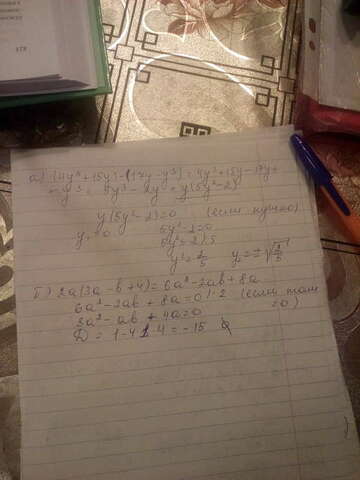 а) (4y³+15y)-(17y-y³)=4y³+15y-17y+
+y³= 5y³-2y=y(5y²-2)
y(5y²-2)=0 (если нужно)
y₁=0 5y²-2=0
5y²=2|:5
y²=2/5 y=±√2/5
Б) 2a(3a-b+4)=6a²-2ab+8a
6a²-2ab+8a=0|:2 (если там
=0)
3a²-ab+4a=0
Д = 1-4·4=-15